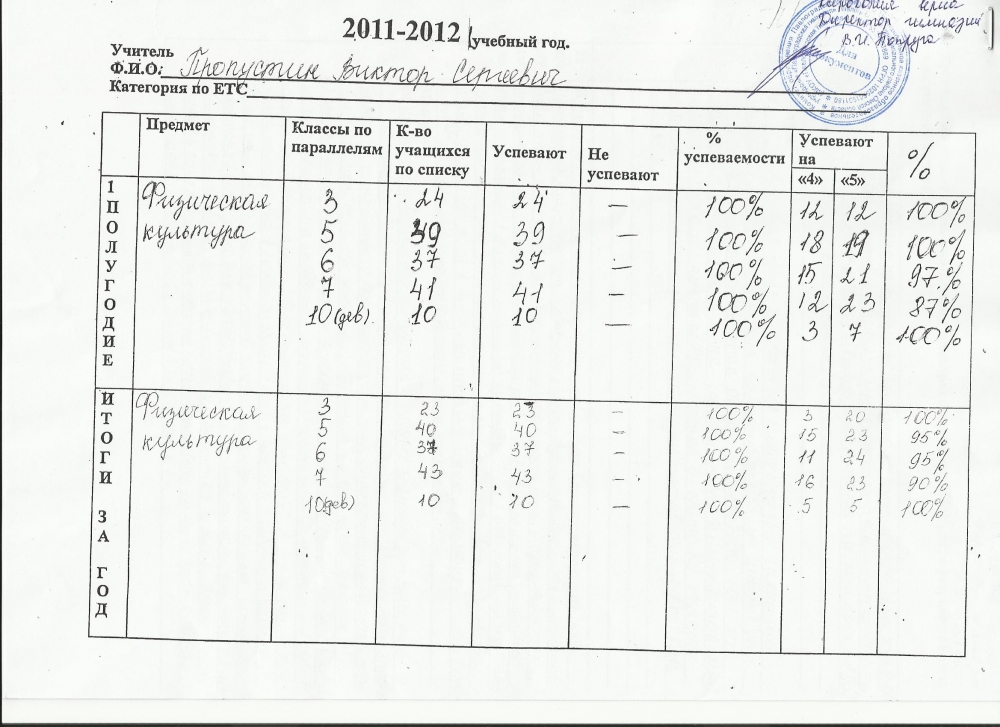 2011-2012 учебный год.
верна
Директор гимназии
В.И. Попруга
Для
документов
Учитель
Ф.И.О: Пропустин Виктор Сергеевич
Категория по ЕТС
Предмет Классы по параллелям К-во учащихся по списку Успевают Не успевают % успеваемости Успевают на %
«4» «5»
1 ПОЛУГОДИЕ
Физическая 3 24 24 — 100% 12 12 100%
культура 5 39 39 — 100% 18 19 100%
6 37 37 — 100% 15 21 97%
7 41 41 — 100% 12 23 87%
10(дев). 10 10 — 100% 3 7 100%
ИТОГИ ЗА ГОД
Физическая 3 23 23 — 100% 3 20 100%
культура 5 40 40 — 100% 15 23 95%
6 37 37 — 100% 11 24 95%
7 43 43 — 100% 16 23 90%
10(дев) 10 10 — 100% 5 5 100%